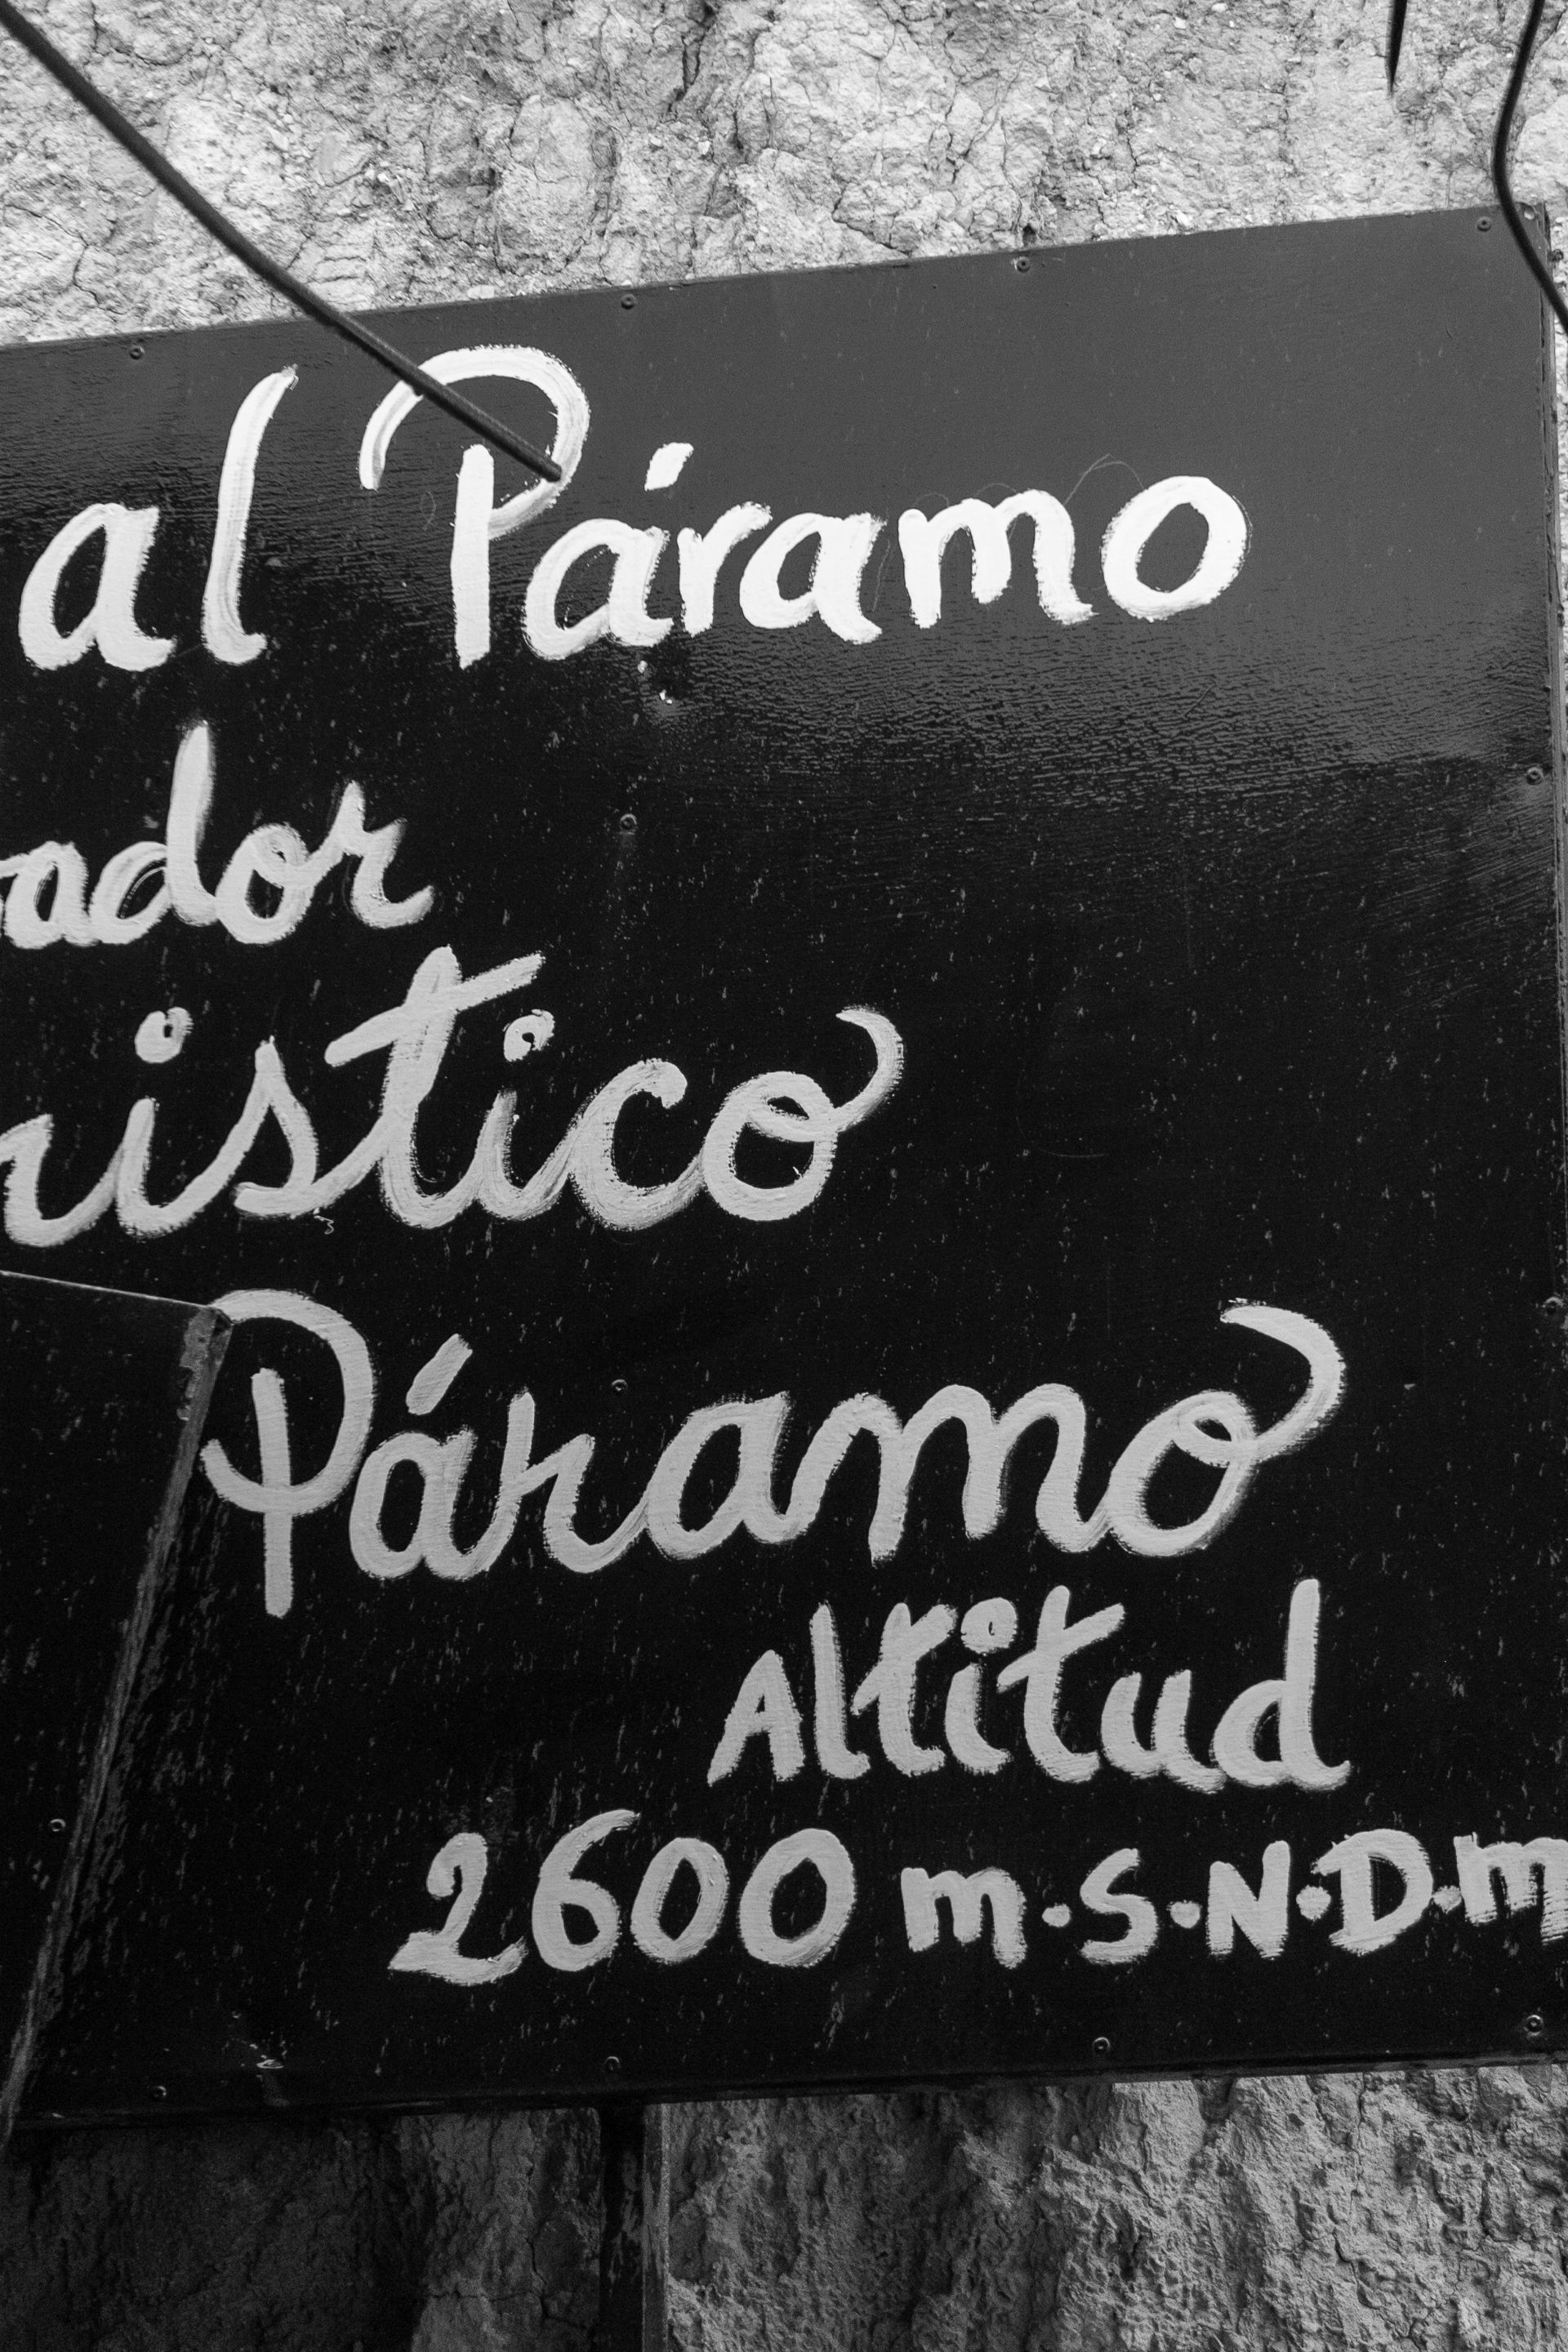 al Páramo
rador
ristico
Páramo
Altitud
2600 m.S.N.D.m